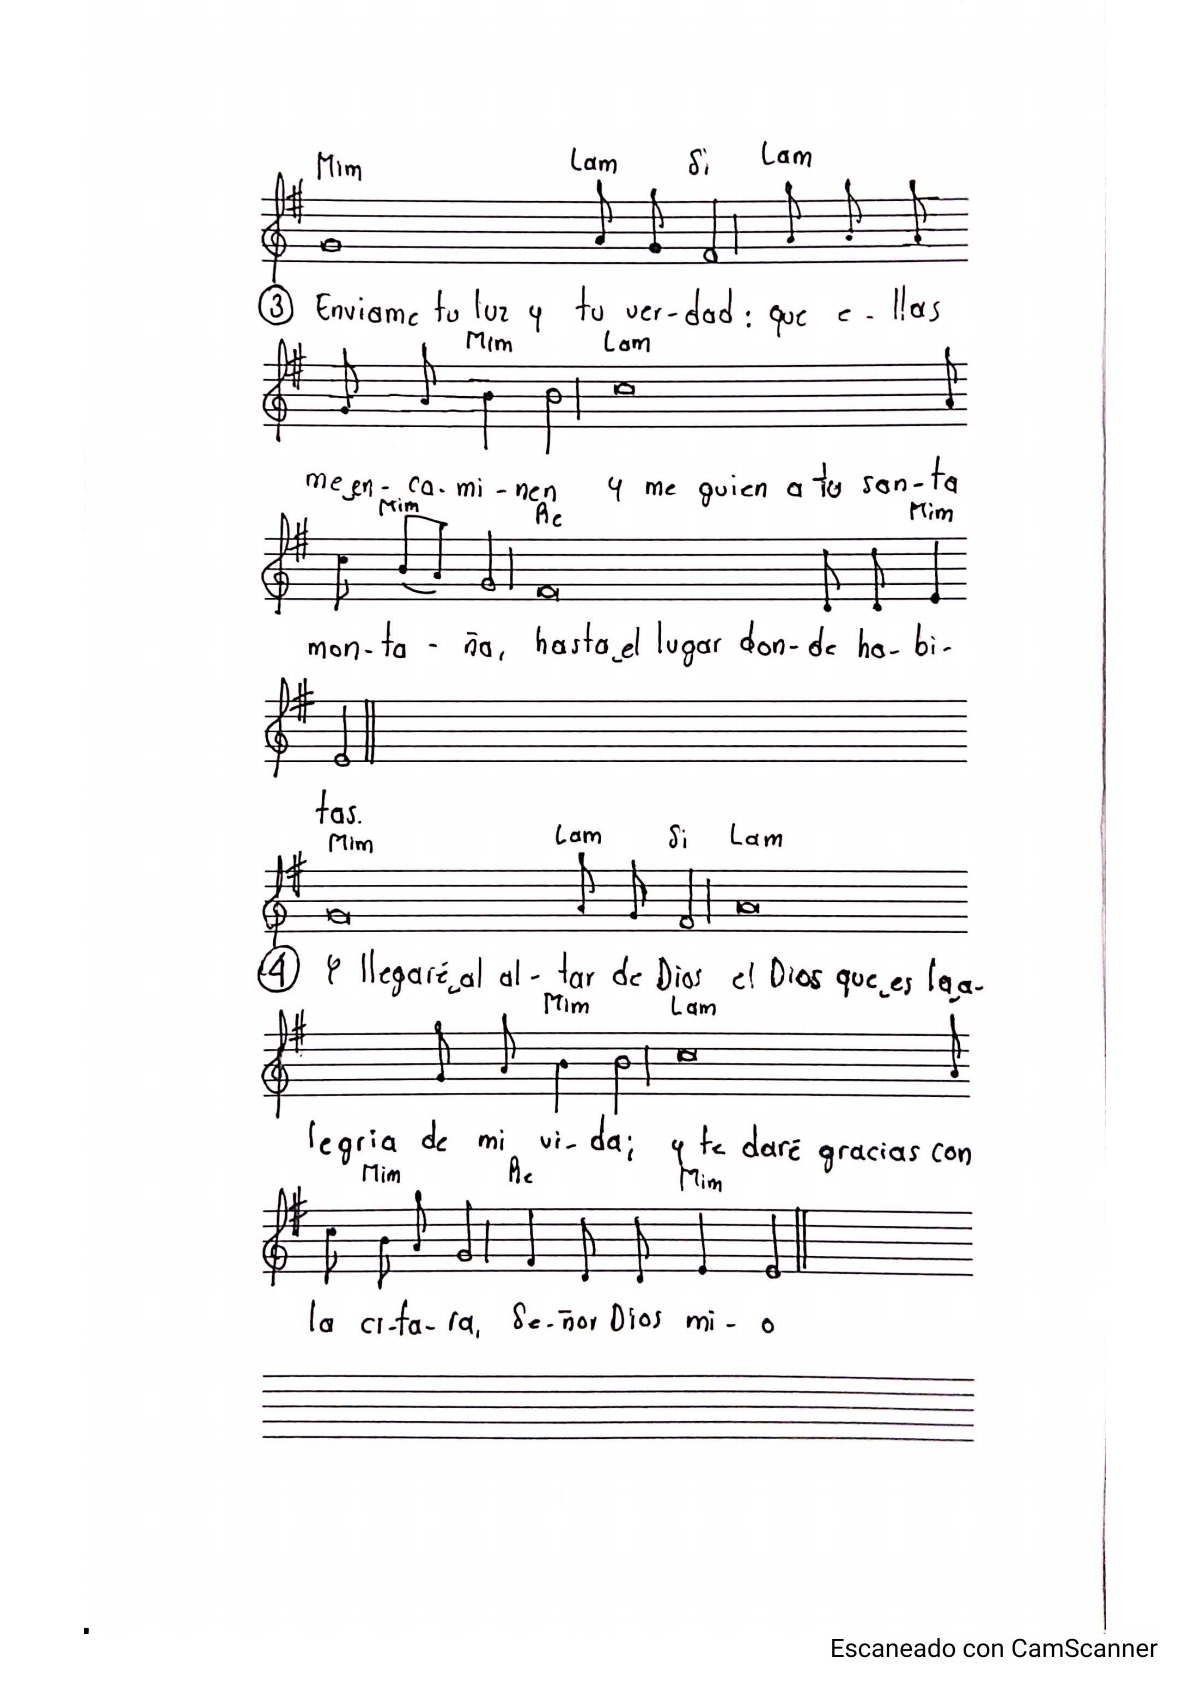 Mim Lam Si Lam
③ Enviame tu luz y tu ver-dad: que e-llas
Mim Lam
me en-ca-mi-nen y me guien a tu san-ta
Mim Re Mim
mon-ta-ña, hasta el lugar don-de ha-bi-
tas.
Mim Lam Si Lam
④ Y llegaré al al-tar de Dios el Dios que es la a-
Mim Lam
legria de mi vi-da; y te daré gracias con
Mim Re Mim
la ci-ta-ra, Se-ñor Dios mi-o
Escaneado con CamScanner